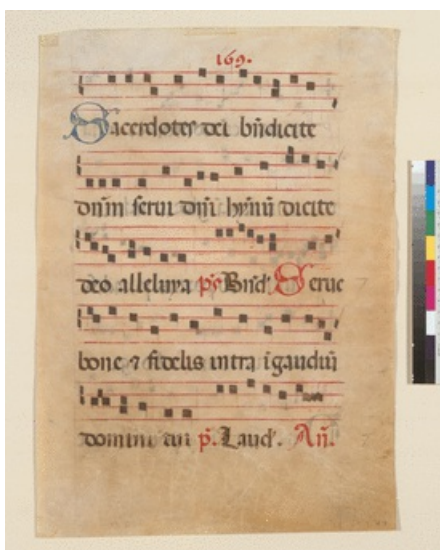 169.
Sacerdotes dei bn̄dicite
dn̄m serui dn̄i hȳnū dicite
deo alleluya ps̄ Bn̄d'. Serue
bone ⁊ fidelis intra ī gaudiū
domini tui p̄. Laud'. An̄.